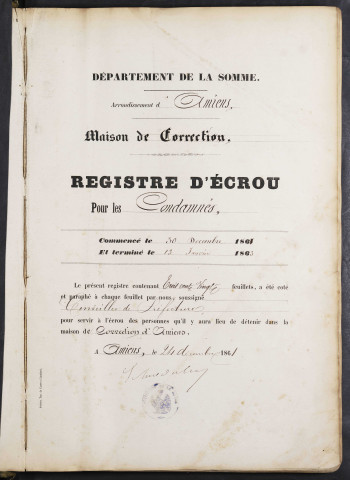 DÉPARTEMENT DE LA SOMME.
Arrondissement d'Amiens.
Maison de Correction.
REGISTRE D'ÉCROU
Pour les Condamnés.
Commencé le 30 Décembre 1861
Et terminé le 13 Janvier 1863
Le présent registre contenant Trois cents Vingt feuillets, a été coté
et paraphé à chaque feuillet par nous, soussigné
Conseiller de Préfecture
pour servir à l'écrou des personnes qu'il y aura lieu de détenir dans la
maison de Correction d'Amiens.
A Amiens, le 24 décembre 1861